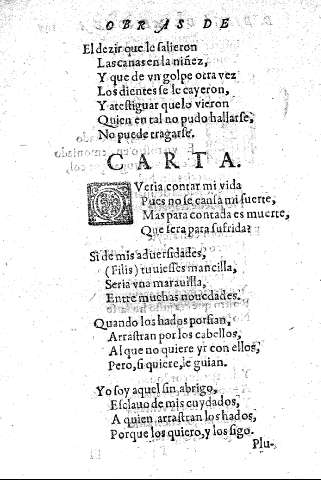 OBRAS DE
El dezir que le salieron
Las canas en la niñez,
Y que de vn golpe otra vez
Los dientes se le cayeron,
Y atestiguar que lo vieron
Quien en tal no pudo hallarse,
No puede tragarse.
CARTA.
QVeria contar mi vida
Pues no se cansa mi suerte,
Mas para contada es muerte,
Que sera para sufrida?
Si de mis aduersidades,
(Filis) tuuiesses manzilla,
Seria vna marauilla,
Entre muchas nouedades.
Quando los hados porfian,
Arrastran por los cabellos,
Al que no quiere yr con ellos,
Pero, si quiere, le guian.
Yo soy aquel sin abrigo,
Esclauo de mis cuydados,
A quien arrastran los hados,
Porque los quiero, y los sigo.
Plu-